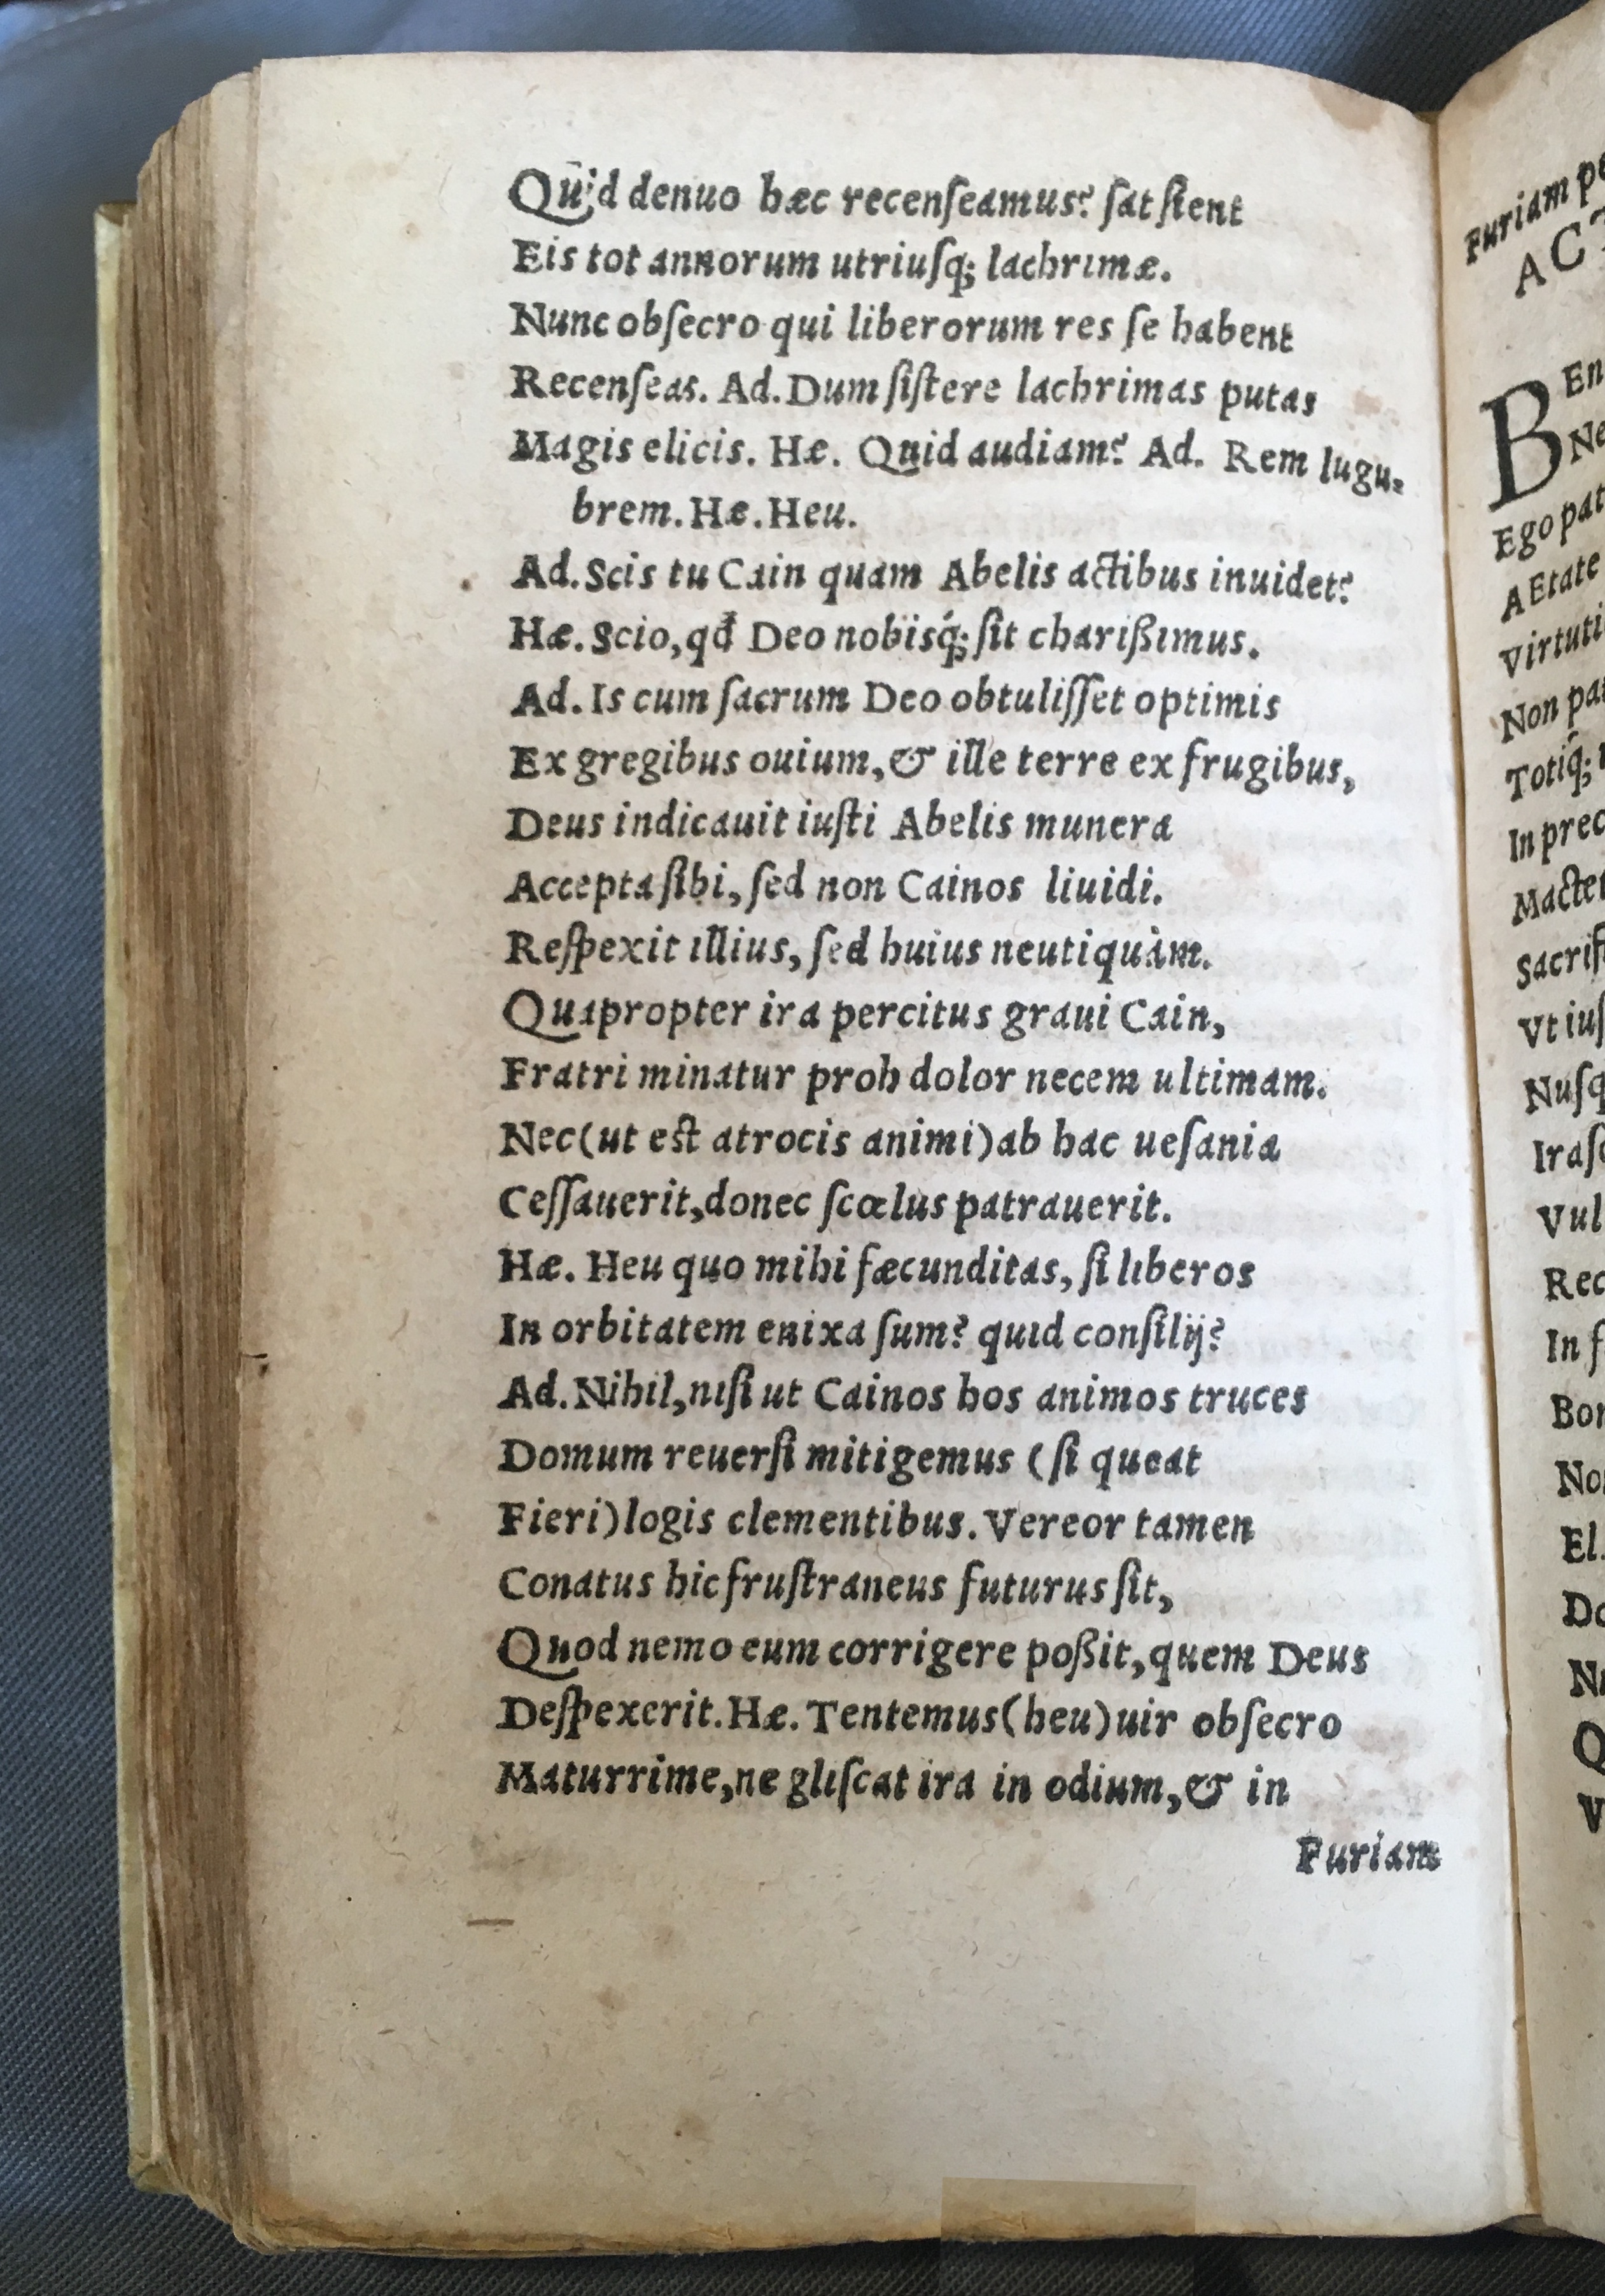 Quid denuo hæc recenſeamus? ſat ſient
Eis tot annorum utriuſq́; lachrimæ.
Nunc obſecro qui liberorum res ſe habent
Recenſeas. Ad. Dum ſiſtere lachrimas putas
Magis elicis. Hæ. Quid audiam? Ad. Rem lugu-
brem. Hæ. Heu.
Ad. Scis tu Cain quam Abelis actibus inuidet?
Hæ. Scio, qđ Deo nobisq́; ſit charißimus.
Ad. Is cum ſacrum Deo obtuliſſet optimis
Ex gregibus ouium, & ille terre ex frugibus,
Deus indicauit iuſti Abelis munera
Accepta ſibi, ſed non Cainos liuidi.
Reſpexit illius, ſed huius neutiquàm.
Quapropter ira percitus graui Cain,
Fratri minatur proh dolor necem ultimam.
Nec (ut eſt atrocis animi) ab hac ueſania
Ceſſauerit, donec ſcœlus patrauerit.
Hæ. Heu quo mihi fæcunditas, ſi liberos
In orbitatem enixa ſum? quid conſilij?
Ad. Nihil, niſi ut Cainos hos animos truces
Domum reuerſi mitigemus (ſi queat
Fieri) logis clementibus. Vereor tamen
Conatus hic fruſtraneus futurus ſit,
Quod nemo eum corrigere poßit, quem Deus
Deſpexerit. Hæ. Tentemus (heu) uir obſecro
Maturrime, ne gliſcat ira in odium, & in
Furiam
Furiam
B En
Ego
AEtate
Non
Totiq́;
In
Vt
In
El.